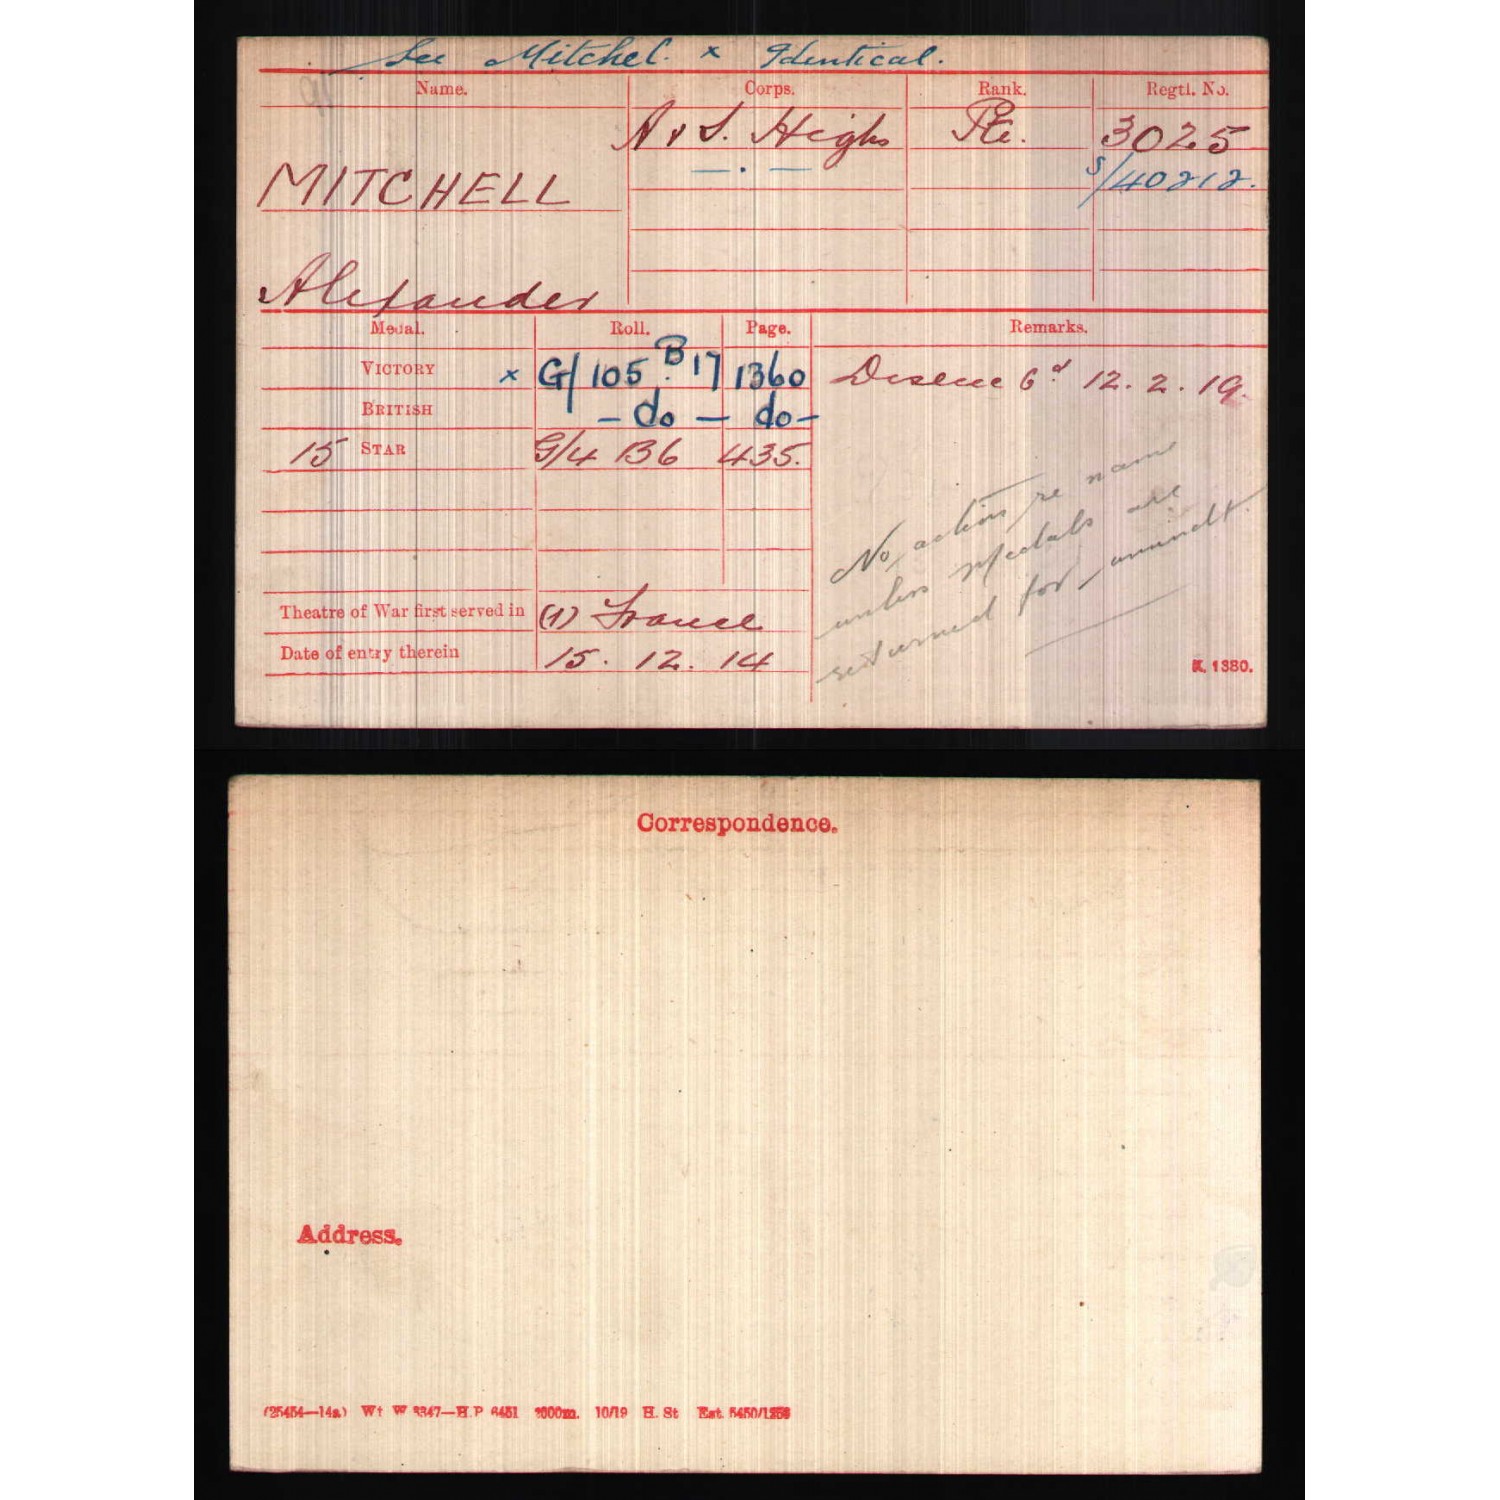 See Mitchel. x Identical.
Name. Corps. Rank. Regtl. No.
A & S. Highs Pte. 3025
MITCHELL — . — S/40212.
Alexander
Medal. Roll. Page. Remarks.
VICTORY x G/105 B 17 1360 12. 2. 19.
BRITISH — do — do —
15 STAR G/4 B6 435.
No action re name
unless Medals are
returned for amendt.
Theatre of War first served in (1) France
Date of entry therein 15. 12. 14
K. 1380.
Correspondence.
Address.
(25454—14a) Wt W 3347—H.P 6451 2000m. 10/19 H. St Est. 5450/1256